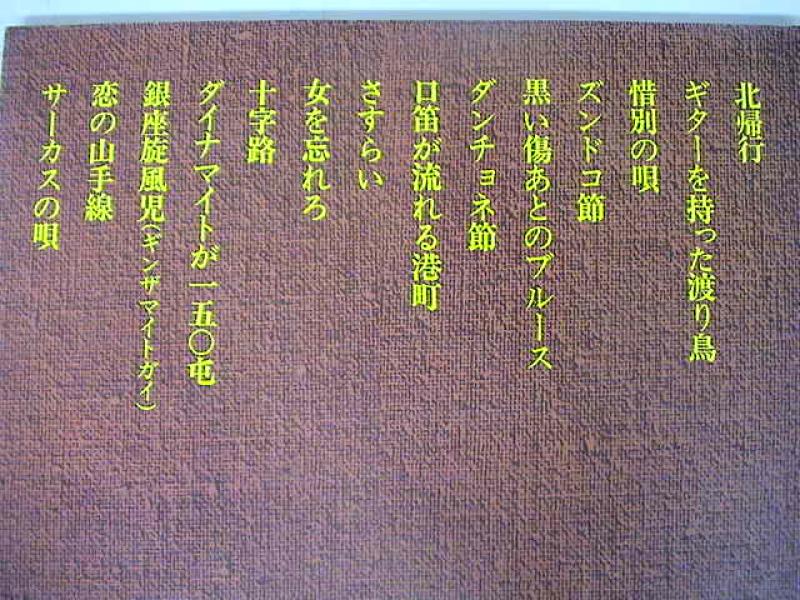 北帰行
ギターを持った渡り鳥
惜別の唄
ズンドコ節
黒い傷あとのブルース
ダンチョネ節
口笛が流れる港町
さすらい
女を忘れろ
十字路
ダイナマイトが一五〇屯
銀座旋風児(ギンザマイトガイ)
恋の山手線
サーカスの唄